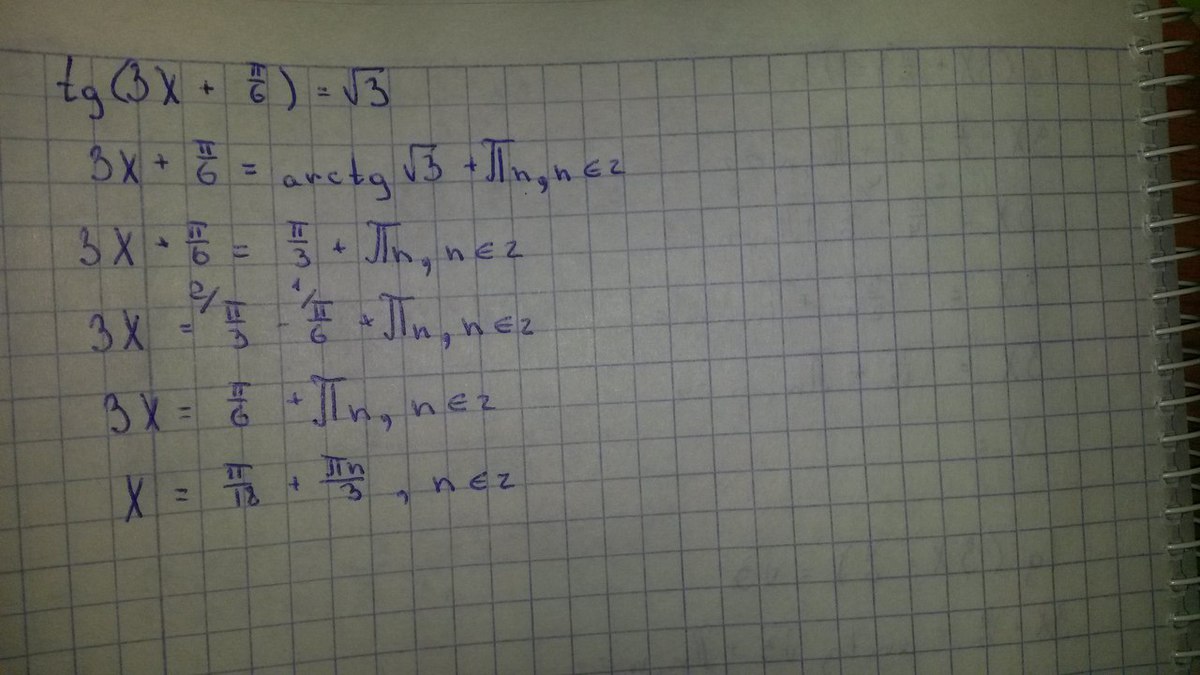 tg(3x + π/6) = √3
3x + π/6 = arctg √3 + πn, n ∈ z
3x + π/6 = π/3 + πn, n ∈ z
3x = ²/ π/3 - ¹/ π/6 + πn, n ∈ z
3x = π/6 + πn, n ∈ z
x = π/18 + πn/3, n ∈ z